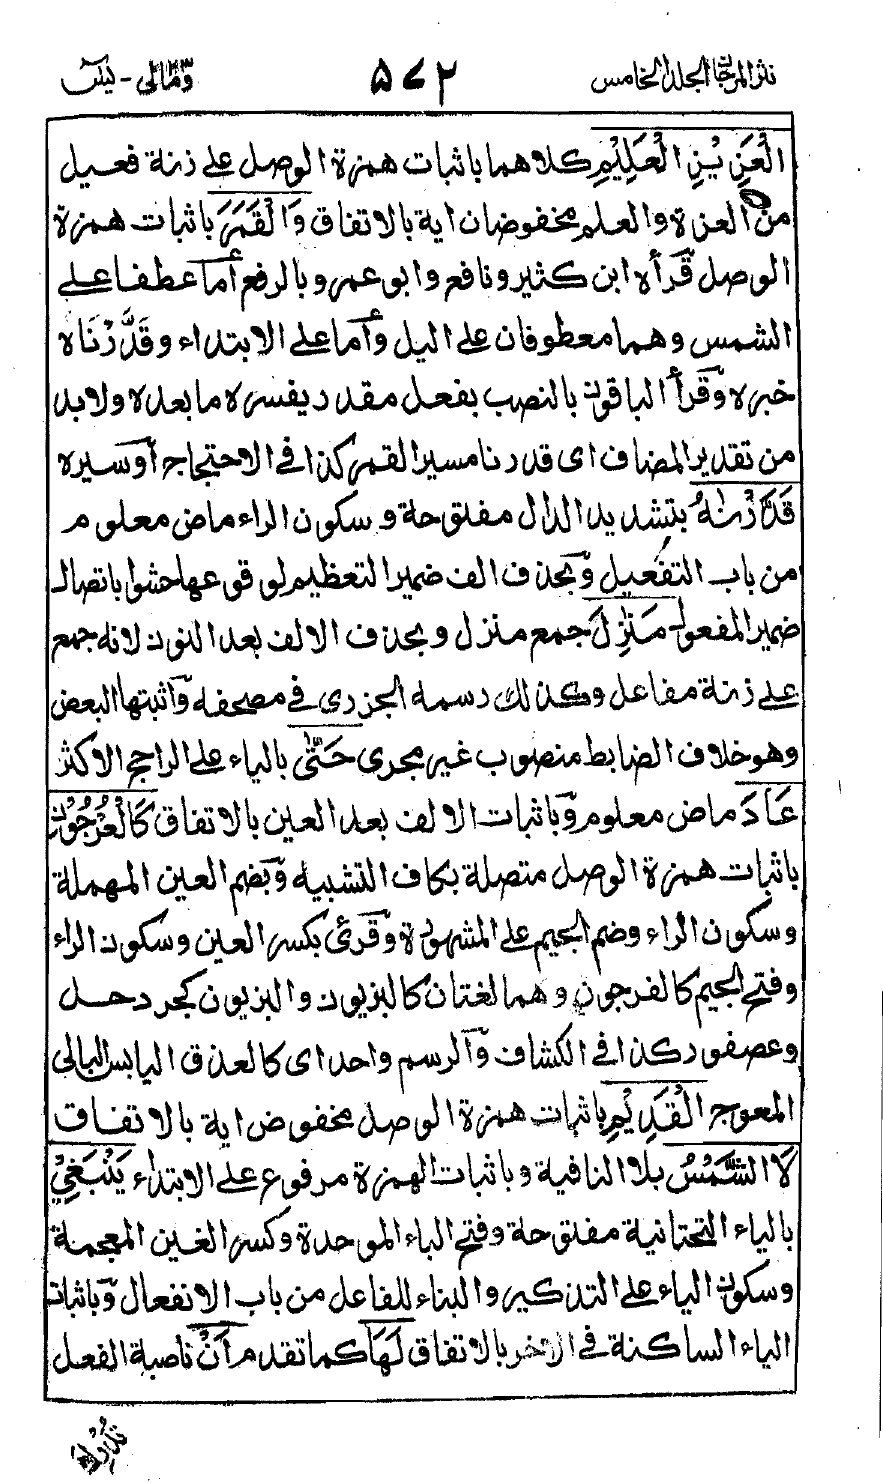 نثر المرجان المجلد الخامس ۵۷۲ ومالی - یٰسٓ
الْعَزِيْزِ الْعَلِيْمِ كلاهما باثبات همزة الوصل على زنة فعيل
من العزة والعلم مخفوضان اية بالاتفاق وَالْقَمَرَ باثبات همزة
الوصل قرأه ابن كثير ونافع وابو عمرو بالرفع أما عطفا على
الشمس وهما معطوفان على اليل وأما على الابتداء وقَدَّرْنَاه
خبره وقرأ الباقون بالنصب بفعل مقدر يفسره ما بعده ولابد
من تقدير المضاف اى قدرنا مسير القمر كذا في الاحتجاج أو سيره
قَدَّرْنٰهُ بتشديد الدال مفتوحة وسكون الراء ماض معلوم
من باب التفعيل وبحذف الف ضمير التعظيم لوقوعها حشوا باتصال
ضمير المفعول مَنَازِلَ جمع منزل وبحذف الالف بعد النون لانه جمع
على زنة مفاعل وكذلك رسمه الجزرى في مصحفه واثبتها البعض
وهو خلاف الضابط منصوب غير مجرى حَتّٰى بالياء على الراجح الاكثر
عَادَ ماض معلوم وباثبات الالف بعد العين بالاتفاق كَالْعُرْجُوْنِ
باثبات همزة الوصل متصلة بكاف التشبيه وبضم العين المهملة
وسكون الراء وضم الجيم على المشهورة وقرئ بكسر العين وسكون الراء
وفتح الجيم كالفرجون وهما لغتان كالبزيون والبزيون كجردحل
وعصفور كذا في الكشاف والرسم واحد اى كالعذق اليابس البالى
المعوج الْقَدِيْمِ باثبات همزة الوصل مخفوض اية بالاتفاق
لَا الشَّمْسُ بلا النافية وباثبات الهمزة مرفوع على الابتداء يَنْبَغِيْ
بالياء التحتانية مفتوحة وفتح الباء الموحدة وكسر الغين المعجمة
وسكون الياء على التذكير والبناء للفاعل من باب الانفعال وباثبات
الياء الساكنة في الاخر بالاتفاق لَهَا كما تقدم أَنْ ناصبة الفعل
تُدْرِكَ